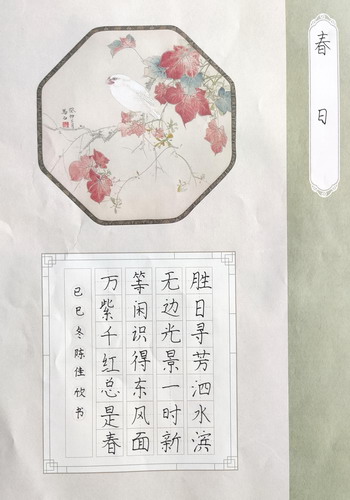 春日
胜日寻芳泗水滨
无边光景一时新
等闲识得东风面
万紫千红总是春
己巳冬陈佳欣书